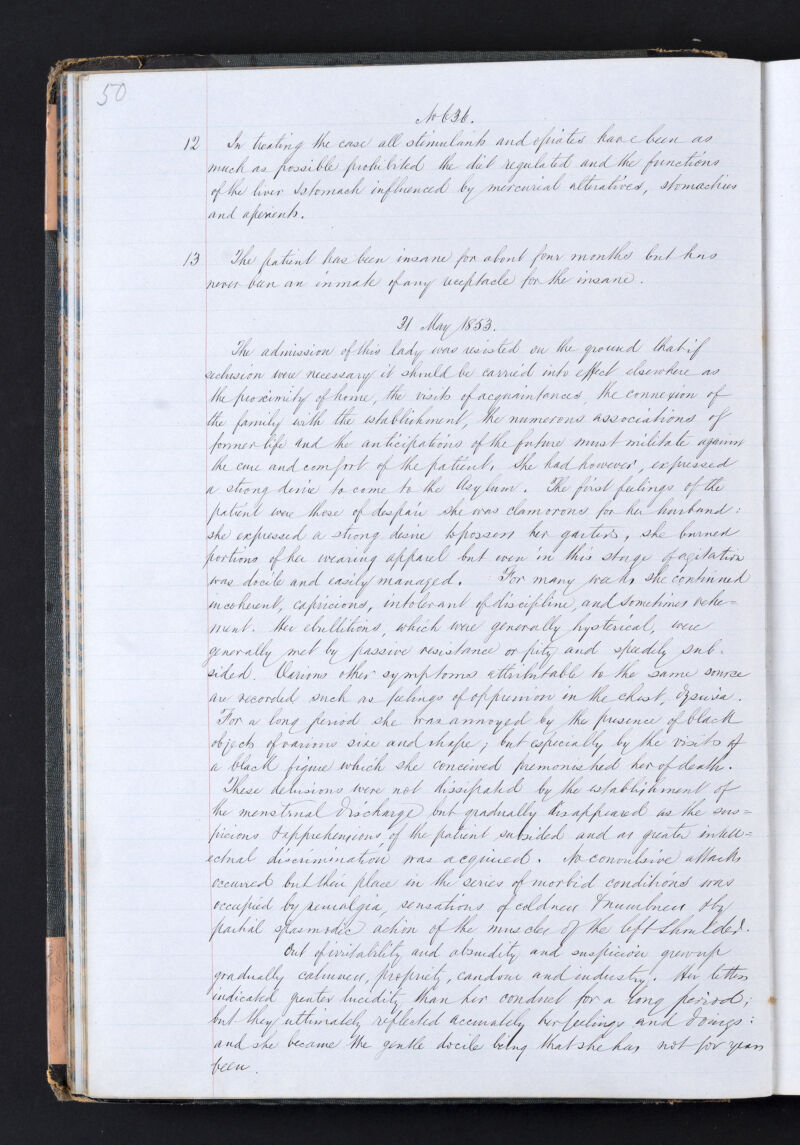 50
No 636.
12 In treating the case all stimulants and opiates have been as
much as possible prohibited the diet regulated and the functions
of the liver & stomach influenced by mercurial alteratives, stomachics
and aperients.
13 The patient has been insane for about four months but has
never been an inmate of any receptacle for the insane.
31 May 1853.
The admission of this lady was resisted on the ground that if
seclusion were necessary it should be carried into effect elsewhere as
the proximity of home, the visits of acquaintances, the connexion of
the family with the establishment, the numerous associations of
former life and the anticipations of the future must militate against
the cure and comfort of the patient. She had however, expressed
a strong desire to come to the Asylum. The first feelings of the
patient were those of despair she was clamorous for her husband:
she expressed a strong desire to possess her garters, she burned
portions of her wearing apparel but even in this stage of agitation
was docile and easily managed. For many weeks she continued
incoherent, capricious, intolerant of discipline, and sometimes vehe=
ment. Her ebullitions, which were generally hysterical, were
generally met by passive resistance or pity and speedily sub-
sided. Various other symptoms attributable to the same source
are recorded such as feelings of oppression in the chest,
For a long period she was annoyed by the presence of black
objects of various size and shape; but especially by the visits of
a black figure which she conceived premonished her of death.
These delusions were not dissipated by the establishment of
the menstrual discharge but gradually disappeared as the sus=
picions & apprehensions of the patient subsided and as greater intell=
ectual discrimination was acquired. No convulsive attacks
occurred but their place in the series of morbid conditions was
occupied by neuralgia, sensations of coldness & numbness & by
partial spasmodic action of the muscles of the left shoulder.
Out of irritability and absurdity and suspicion grew up
gradually calmness, propriety, candour and industry. Her letters
indicated greater lucidity than her conduct for a long period;
but they ultimately reflected accurately her feelings and doings:
and she became the gentle docile being that she has not for years
been.